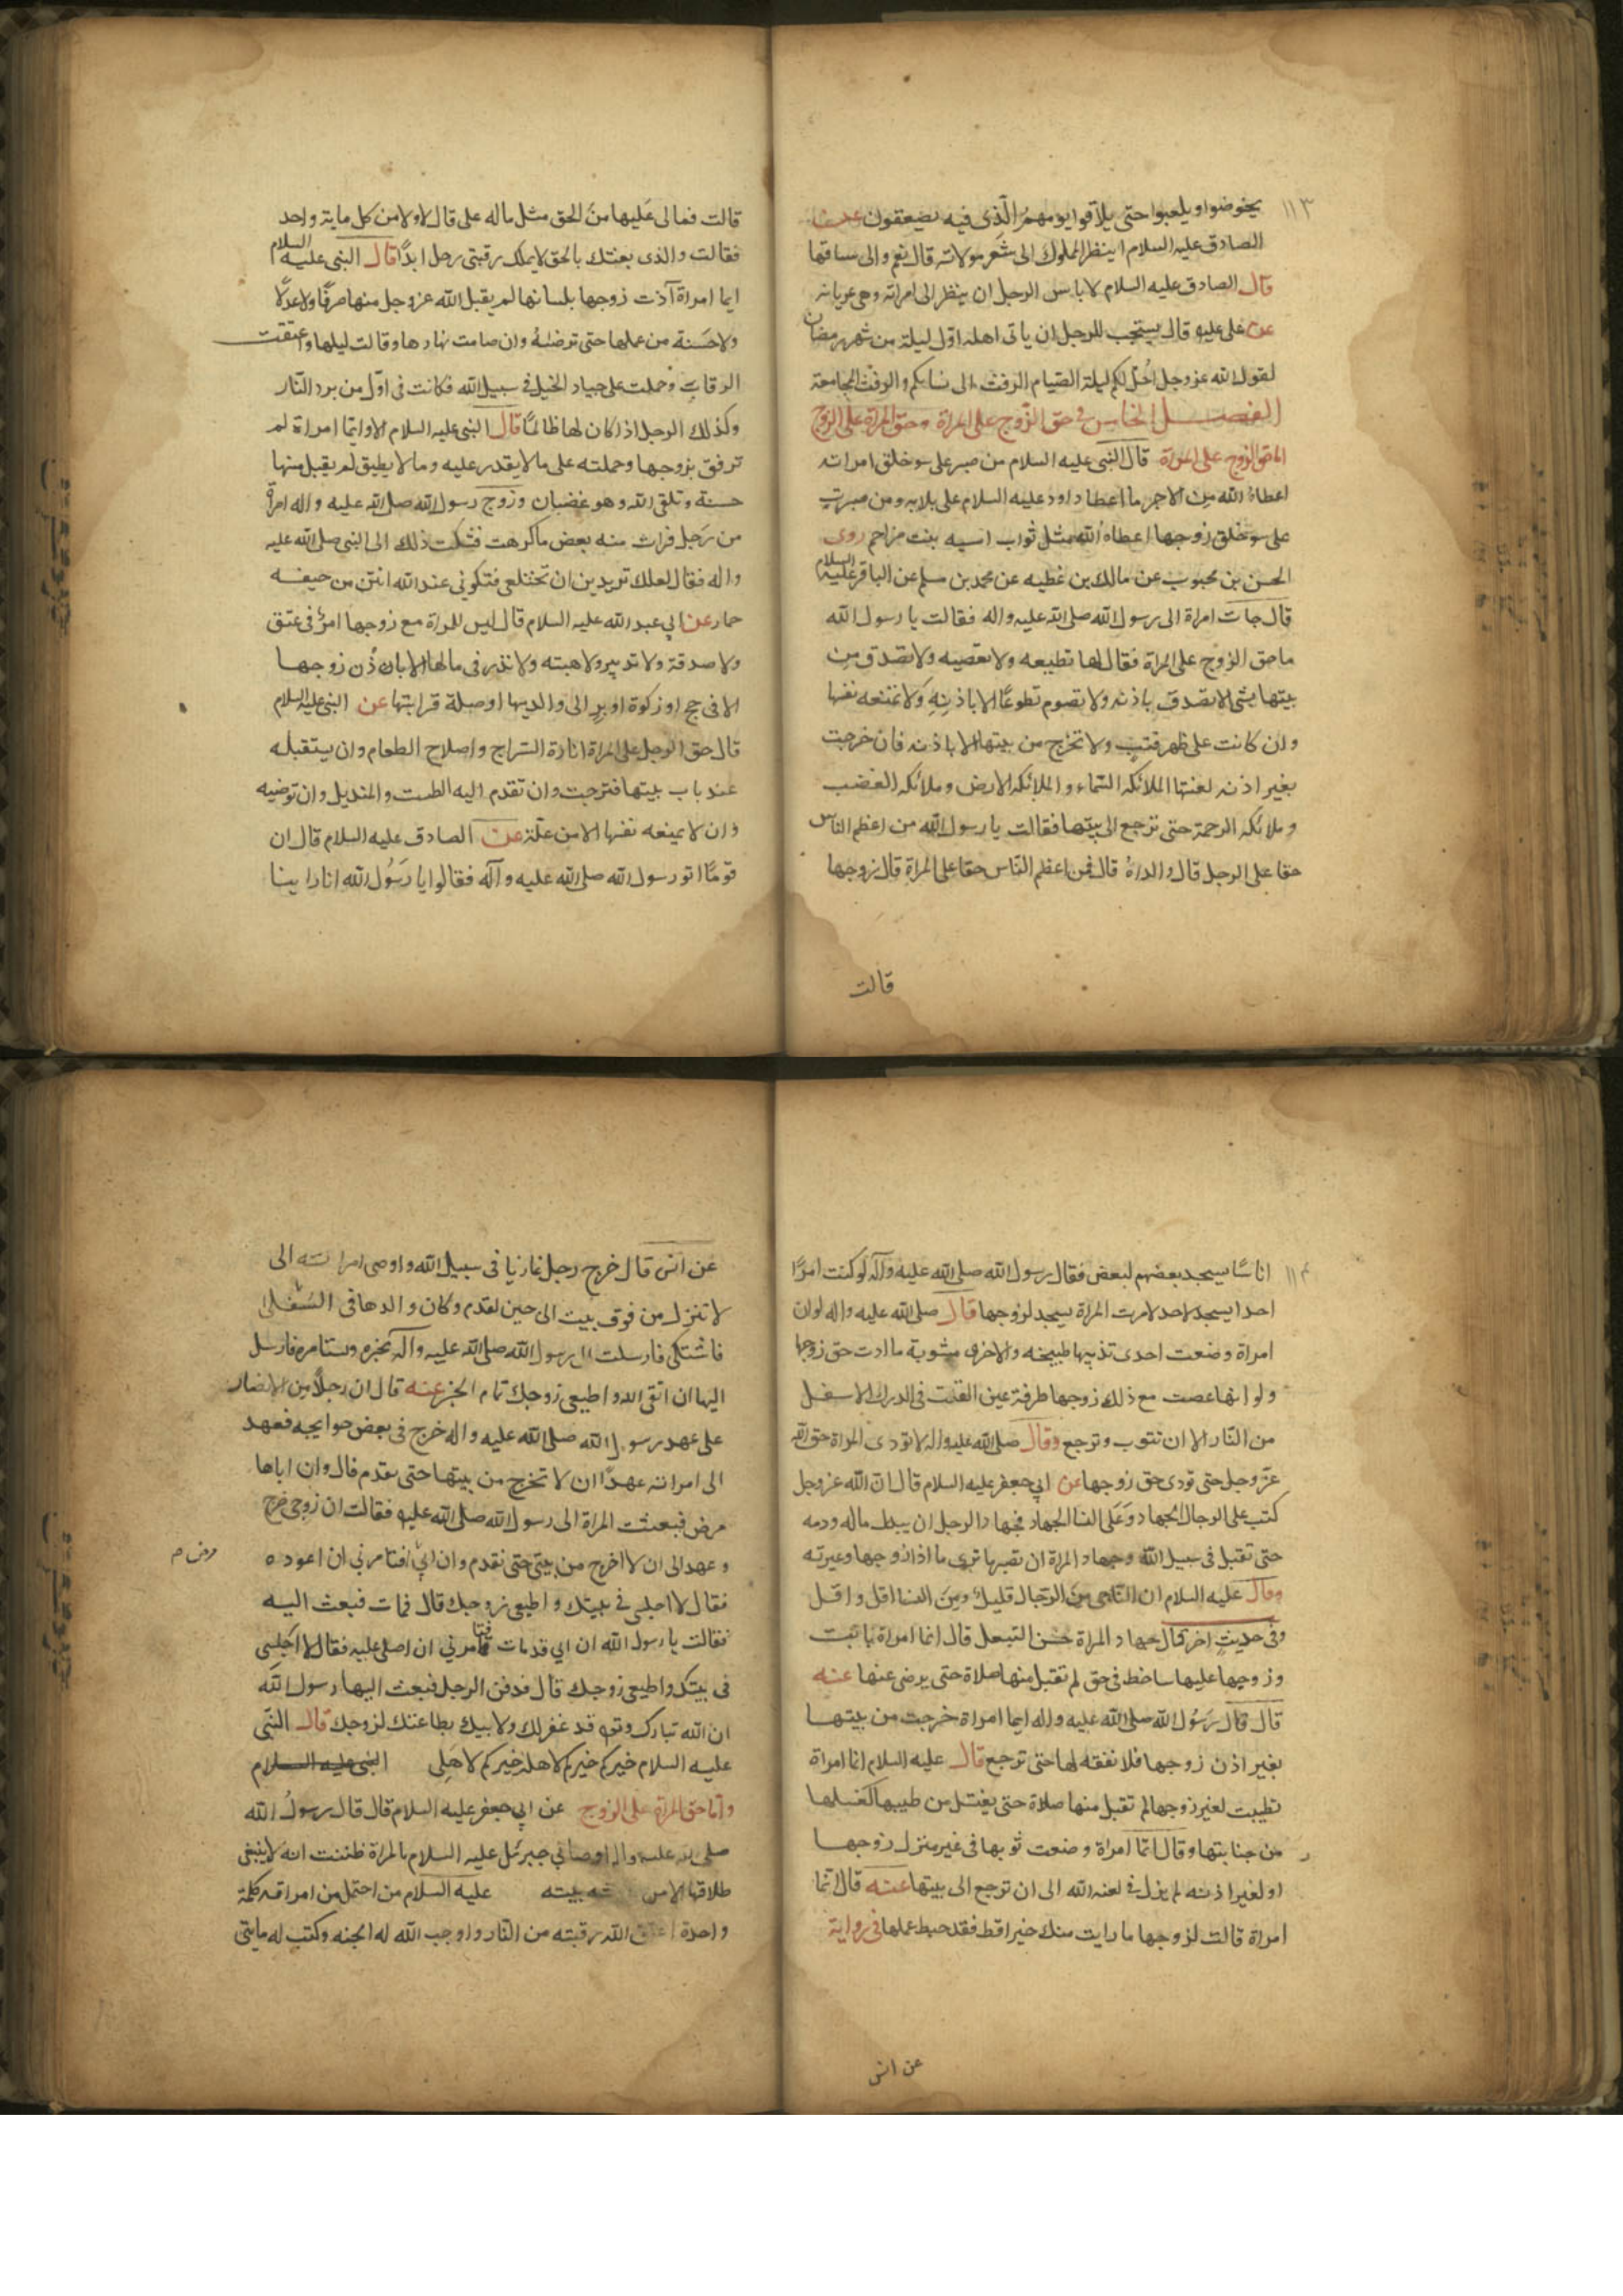 ١١٣
يخوضوا ويلعبوا حتى يلاقوا يومهم الذي فيه يصعقون عن
الصادق عليه السلام اينظر المملوك الى شعر مولاته قال نعم والى ساقها
قال الصادق عليه السلام لا باس الرجل ان ينظر الى امراته وهى عريانه
عن على عليه قال يستحب للرجل ان ياتى اهله اول ليلة من شهر رمضان
لقول الله عز وجل احل لكم ليلة الصيام الرفث الى نسايكم والرفث المجامعة
الفصل الخامس فى حق الزوج على المراة وحق المراة على الزوج
اما حق الزوج على المراة قال النبى عليه السلام من صبر على سو خلق امراته
اعطاه الله من الاجر ما اعطا داود عليه السلام على بلايه ومن صبرت
على سو خلق زوجها اعطاه الله مثل ثواب اسيه بنت مزاحم روى
الحسن بن محبوب عن مالك بن عطيه عن محمد بن مسلم عن الباقر عليه السلام
قال جات امراة الى رسول الله صلى الله عليه واله فقالت يا رسول الله
ما حق الزوج على المراة فقال لها تطيعه ولا تعصيه ولا تصدق من
بيتها بشى الا تصدق باذنه ولا تصوم تطوعا الا باذنه ولا تمنعه نفسها
وان كانت على ظهر قتب ولا تخرج من بيتها الا باذنه فان خرجت
بغير اذنه لعنتها الملائكه السماء والملائكه الارض وملائكه الغضب
وملائكه الرحمة حتى ترجع الى بيتها فقالت يا رسول الله من اعظم الناس
حقا على الرجل قال والداه قال فمن اعظم الناس حقا على المراة قال زوجها
قالت
قالت فمالى عليها من الحق مثل ماله على قال لا ولا من كل ماية واحد
فقالت والذى بعثك بالحق لا يملك رقبتى رجل ابدا قال النبى عليه السلام
ايما امراة آذت زوجها بلسانها لم يقبل الله عز وجل منها صرفا ولا عدلا
ولا حسنة من عملها حتى ترضيه وان صامت نهارها وقالت ليلها واعتقت
الرقاب وحملت على جياد الخيل فى سبيل الله فكانت فى اول من يرد النار
وكذلك الرجل اذا كان لها ظالما قال النبى عليه السلام الا وايما امراة لم
ترفق بزوجها وحملته على ما لا يقدر عليه وما لا يطيق لم يقبل منها
حسنة وتلقى الله وهو غضبان وزوج رسول الله صلى الله عليه واله امراة
من رجل فرات منه بعض ما كرهت فشكت ذلك الى النبى صلى الله عليه
واله فقال لعلك تريدين ان تختلعى فتكونى عند الله انتن من جيفه
حمار عن ابى عبد الله عليه السلام قال ليس للمراة مع زوجها امر فى عتق
ولا صدقة ولا تدبير ولا هبته ولا نذر فى مالها الا باذن زوجها
الا فى حج او زكوة او بر الى والديها او صلة قرابتها عن النبى عليه السلام
قال حق الرجل على المراة انارة السراج واصلاح الطعام وان يستقبله
عند باب بيتها فترحبت وان تقدم اليه الطست والمنديل وان توضيه
وان لا يمنعه نفسها الا من علة عن الصادق عليه السلام قال ان
قوما اتو رسول الله صلى الله عليه وآله فقالوا يا رسول الله انا راينا
١١٤
اناسا يسجد بعضهم لبعض فقال رسول الله صلى الله عليه وآله لو كنت امرا
احدا يسجد لاحد لامرت المراة يسجد لزوجها قال صلى الله عليه واله لو ان
امراة وضعت احدى ثدييها طبيخه والاخرى مشوية ما ادت حق زوجها
ولو انها عصت مع ذلك زوجها طرفة عين القيت فى الدرك الاسفل
من النار الا ان تتوب وترجع وقال صلى الله عليه واله لا تودى المراة حق الله
عز وجل حتى تودى حق زوجها عن ابى جعفر عليه السلام قال ان الله عز وجل
كتب على الرجال الجهاد وعلى النسا الجهاد فجهاد الرجل ان يبذل ماله ودمه
حتى تقتل فى سبيل الله وجهاد المراة ان تصبر ما ترى من اذا زوجها وغيرته
وقال عليه السلام ان الناجى من الرجال قليل ومن النسا اقل واقل
وفى حديث اخر قال جهاد المراة حسن التبعل قال ايما امراة باتت
وزوجها عليها ساخط فى حق لم تقبل منها صلاة حتى يرضى عنها عنه
قال قال رسول الله صلى الله عليه واله ايما امراة خرجت من بيتها
بغير اذن زوجها فلا نفقه لها حتى ترجع قال عليه السلام ايما امراة
تطيبت لغير زوجها لم تقبل منها صلاة حتى يغتسل من طيبها كغسلها
من جنابتها وقال ايما امراة وضعت ثوبها فى غير منزل زوجها
او لغير اذنه لم يزل فى لعنه الله الى ان ترجع الى بيتها عنه قال ايما
امراة قالت لزوجها ما رايت منك خيرا قط فقد حبط عملها فى رواية
عن انس
عن انس قال خرج رجل غازيا فى سبيل الله واوصى امراته الى
لا تنزل من فوق بيت الى حين لقدم وكان والدها فى السفلى
فاشتكى فارسلت الى رسول الله صلى الله عليه وآله تخبره وستامره فارسل
اليها ان اتقى الله واطيعى زوجك تمام الخبر عنه قال ان رجلا من الانصار
على عهد رسول الله صلى الله عليه واله خرج فى بعض حوايجه فعهد
الى امراته عهدا ان لا تخرج من بيتها حتى يقدم قال وان اباها
مرض فبعثت المراة الى رسول الله صلى الله عليه فقالت ان زوجى خرج
وعهد الى ان لا اخرج من بيتى حتى نقدم وان ابى افتامرنى ان اعوده
مرض
فقال لا اجلسى فى بيتك واطيعى زوجك قال فمات فبعث اليه
فقالت يا رسول الله ان ابى قد مات فتامرنى ان اصلى عليه فقال لا اجلسى
فى بيتك واطيعى زوجك قال فدفن الرجل فبعث اليها رسول الله
ان الله تبارك وتعالى قد غفر لك ولابيك بطاعتك لزوجك قال النبى
عليه السلام خيركم خيركم لاهله وانا خيركم لاهلى النبى عليه السلام
واما حق المراة على الزوج عن ابى جعفر عليه السلام قال قال رسول الله
صلى الله عليه واله اوصانى جبرئل عليه السلام بالمراة ظننت انه لا ينبغى
طلاقها الا من بيته عليه السلام من احتمل من امراته كلمة
واحدة اعتق الله رقبته من النار واوجب الله له الجنه وكتب له مايتى